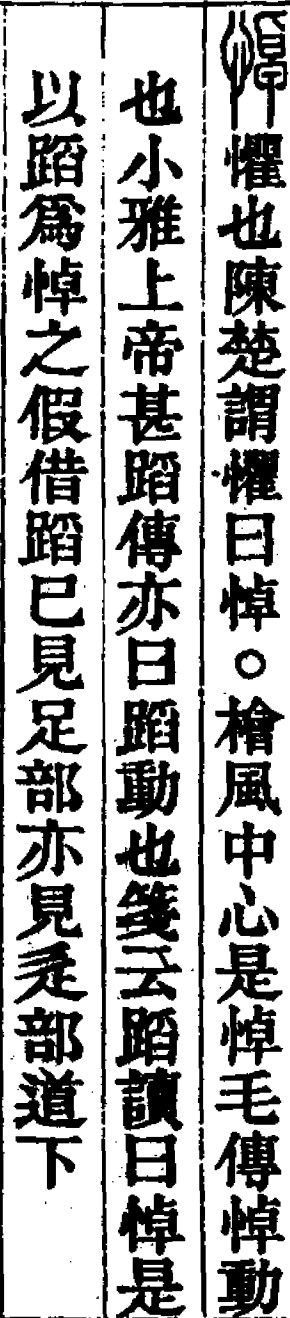 悼懼也陳楚謂懼曰悼。檜風中心是悼毛傳悼動
也小雅上帝甚蹈傳亦曰蹈動也箋云蹈讀曰悼是
以蹈爲悼之假借蹈已見足部亦見辵部道下